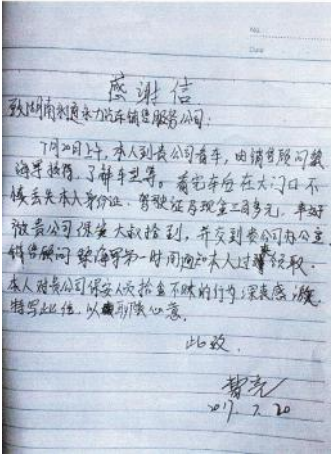 No.
Date
感谢信
致湖南利通永力汽车销售服务公司:
7月20日上午,本人到贵公司看车,由销售顾问
海军接待,了解车型等。看完车后在大门口不
慎丢失本人身份证、驾驶证及现金二百多元,幸好
被贵公司保安大叔捡到,并交到贵公司办公室
销售顾问 海军第一时间通知本人过来领取。
本人对贵公司保安人员拾金不昧的行为深表感激,
特写此信,以表心意。
此致.
2017. 7. 20